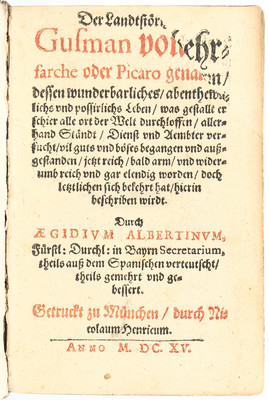 Der Landtstör
Gusman von
farche oder Picaro genan
dessen wunderbarliches/ abenthewr-
lichs vnd possirlichs Leben/ was gestallt er
schier alle ort der Welt durchloffen/ aller-
hand Ständt/ Dienst vnd Aembter ver-
sucht/ vil guts vnd böses begangen vnd auß-
gestanden/ jetzt reich/ bald arm/ vnd wider-
umb reich vnd gar elendig worden/ doch
letztlichen sich bekehrt hat/ hierin
beschriben wirdt.
Durch
ÆGIDIVM ALBERTINVM,
Fürstl: Durchl: in Bayrn Secretarium,
theils auß dem Spanischen verteutscht/
theils gemehrt vnd ge-
bessert.
Getruckt zu München/ durch Ni-
colaum Henricum.
ANNO M. DC. XV.